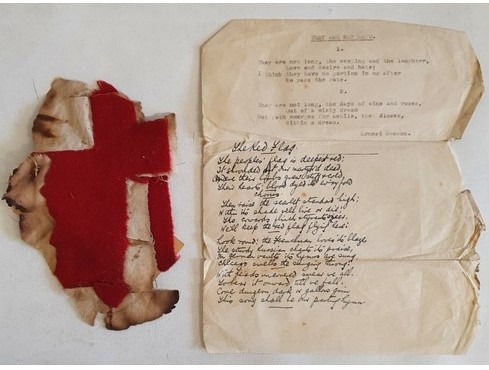 THEY ARE NOT LONG.
1.
They are not long, the weeping and the laughter,
Love and desire and hate;
I think they have no portion in us after
We pass the gate.
2.
They are not long, the days of wine and roses,
Out of a misty dream
Our path emerges for awhile, then closes,
Within a dream.
Ernest Dowson.
The Red Flag.
The peoples' flag is deepest red:
It shrouded oft our martyr'd dead,
their limbs grew stiff & cold
hearts' blood dyed its every fold
chorus
raise the scarlet standard high:
Within its shade we'll live or die
Tho cowards flinch & traitors sneer
We'll keep the red flag flying here:
Look round: the Frenchman loves its blaze
The sturdy Russian chants its praise,
In vaults its hymns are sung
Chicago swells the surging throng:
With heads uncovered swear we all.
To bear it onward till we fall.
Come dungeon dark or gallows grim
This song shall be our parting hymn